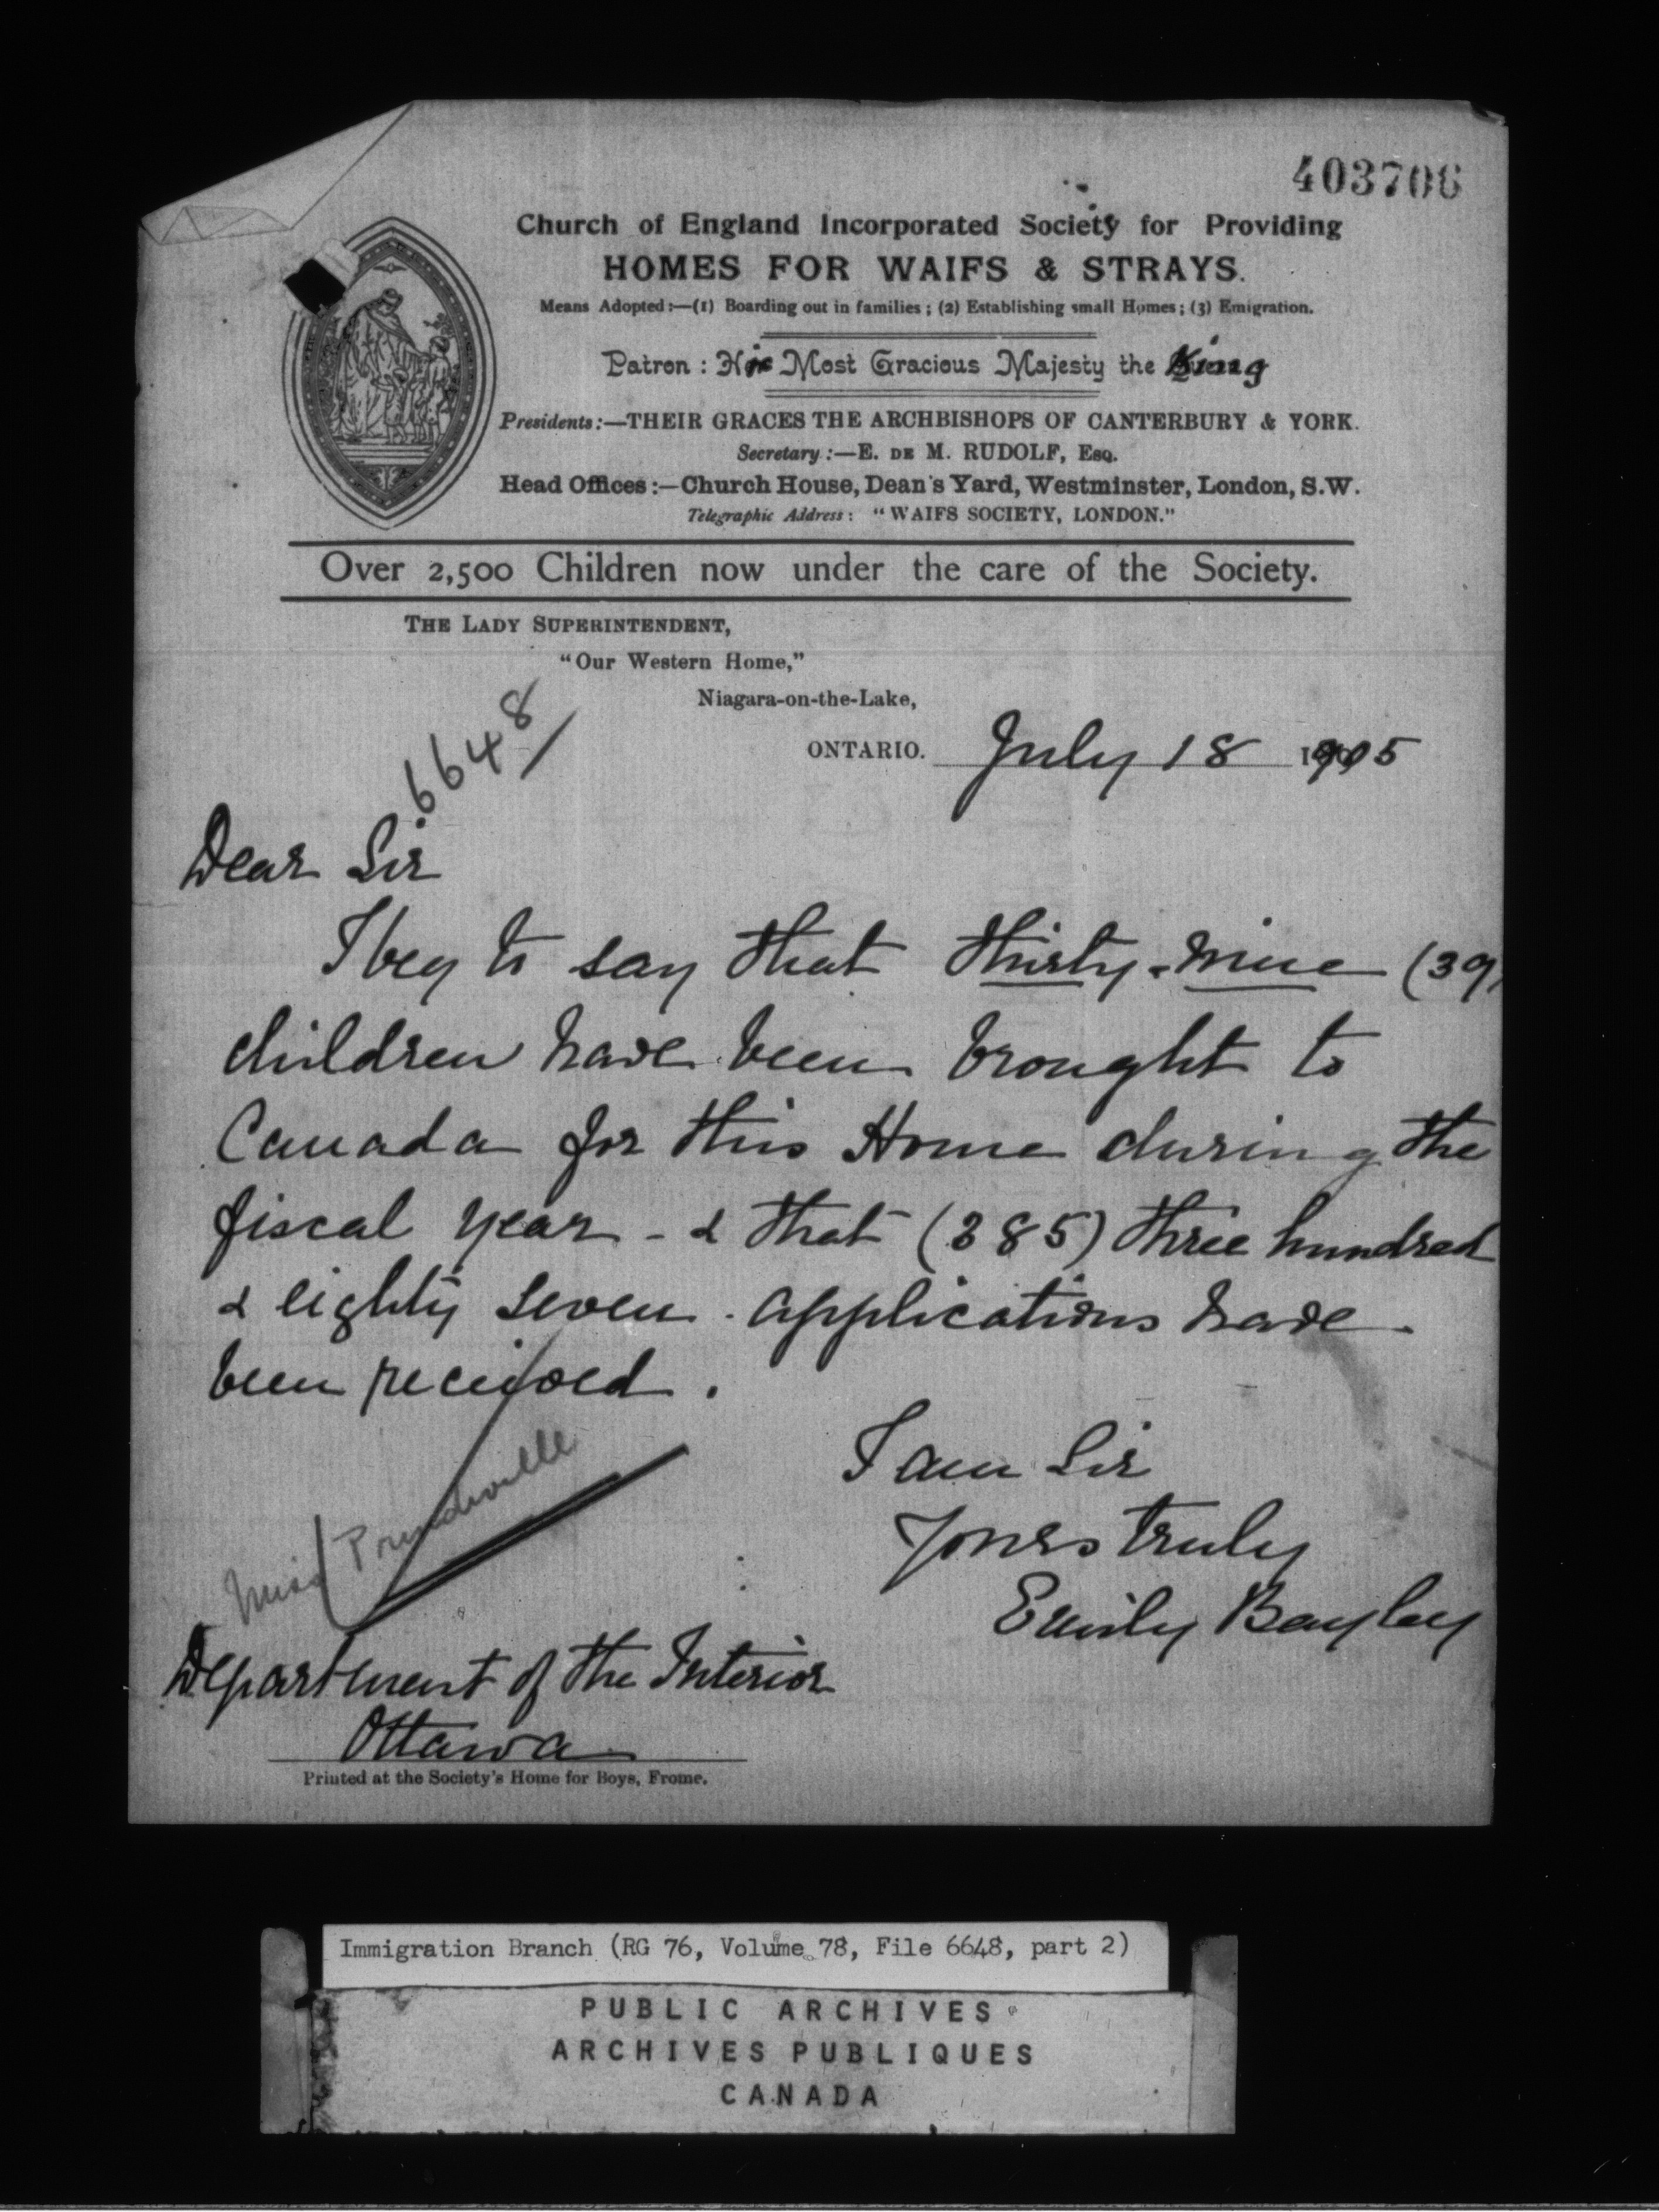 403706
Church of England Incorporated Society for Providing
HOMES FOR WAIFS & STRAYS.
Means Adopted:—(1) Boarding out in families; (2) Establishing small Homes; (3) Emigration.
Patron: His Most Gracious Majesty the King
Presidents:—THEIR GRACES THE ARCHBISHOPS OF CANTERBURY & YORK.
Secretary:—E. DE M. RUDOLF, ESQ.
Head Offices:—Church House, Dean's Yard, Westminster, London, S.W.
Telegraphic Address: "WAIFS SOCIETY, LONDON."
Over 2,500 Children now under the care of the Society.
THE LADY SUPERINTENDENT,
"Our Western Home,"
Niagara-on-the-Lake,
ONTARIO. July 18 1905
6648
Dear Sir
I beg to say that thirty-nine (39)
children have been brought to
Canada for this Home during the
fiscal year - & that (385) three hundred
& eighty seven. applications have
been received.
I am Sir
Yours truly
Emily Bayley
Miss
Department of the Interior
Ottawa
Printed at the Society's Home for Boys, Frome.
Immigration Branch (RG 76, Volume 78, File 6648, part 2)
PUBLIC ARCHIVES
ARCHIVES PUBLIQUES
CANADA